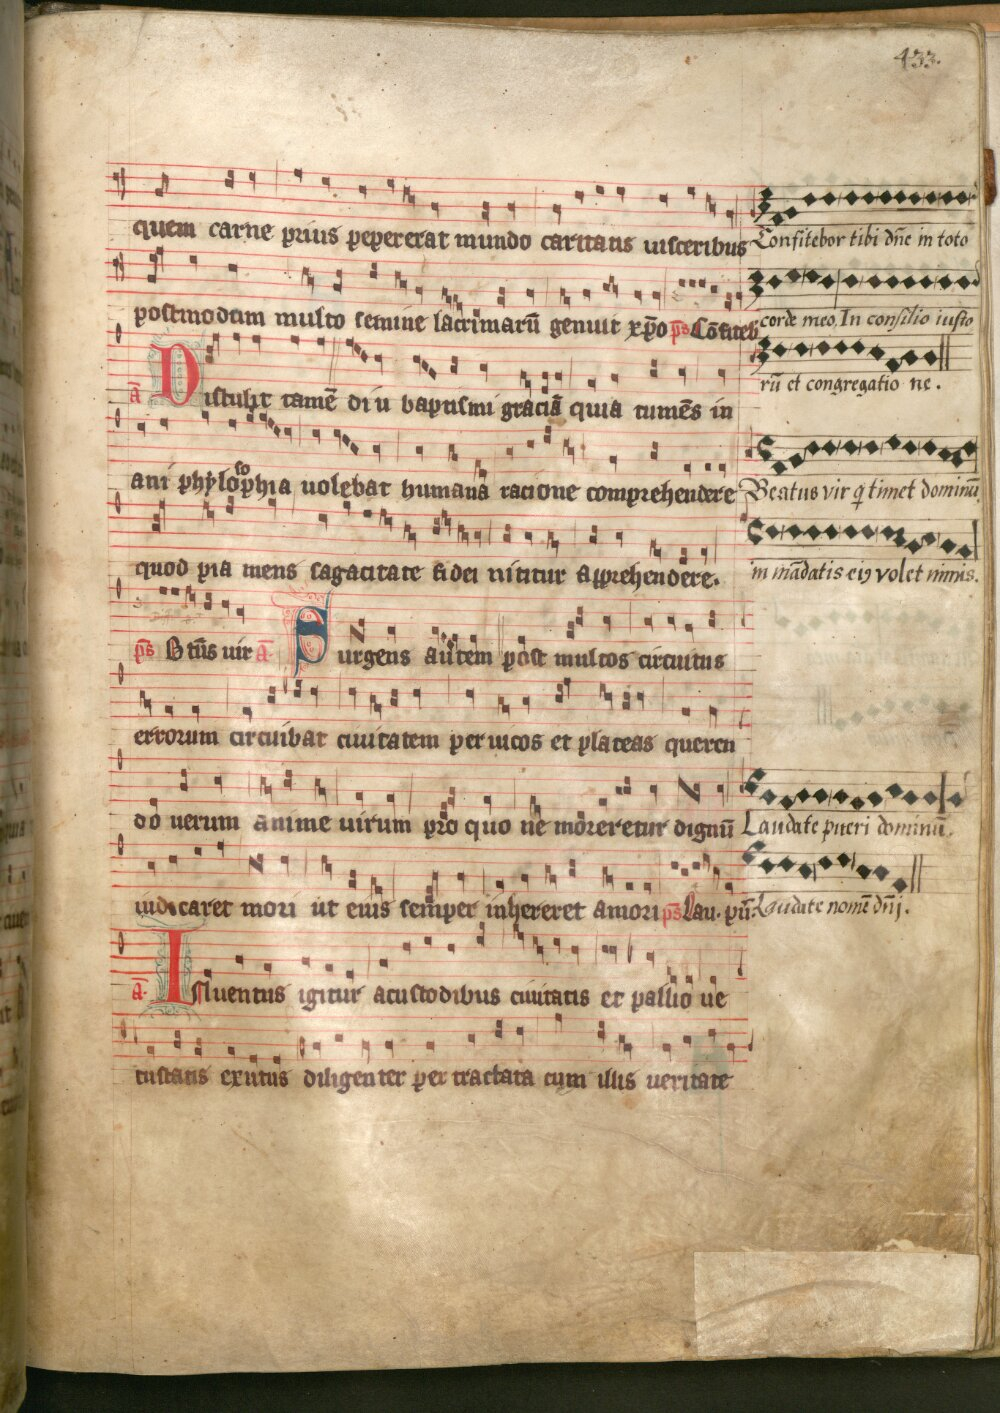 433.
quem carne prius pepererat mundo caritatis uisceribus
postmodum multo semine lacrimarū genuit xp̄o ps̄ Cōfiteb
ā Distulit tamē diu baptismi graciā quia tumēs in
ani phylosophia uolebat humana racione comprehendere
quod pia mens sagacitate fidei nititur apprehendere.
ps̄ Btūs uir ā. Surgens autem post multos circuitus
errorum circuibat ciuitatem per uicos et plateas queren
do uerum anime uirum pro quo ne moreretur dignū
iudicaret mori ut eius semper inhereret amori ps̄ Lau. pu̅.
ā. Inuentus igitur a custodibus ciuitatis et pallio ue
tustatis exutus diligenter pertractata cum illis ueritate
Confitebor tibi dn̄e in toto
corde meo. In consilio iusto
rū et congregatio ne.
Beatus vir q timet dominū
in mādatis eiꝰ volet nimis.
Laudate pueri dominū.
Laudate nomē dn̄j.